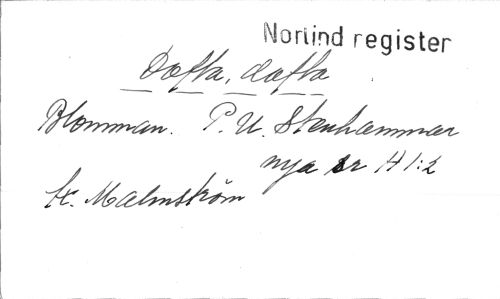 Norlind register
Dofta, dofta
Blomman. P. U. Stenhammar
nya sr H 1:2
K. Malmström